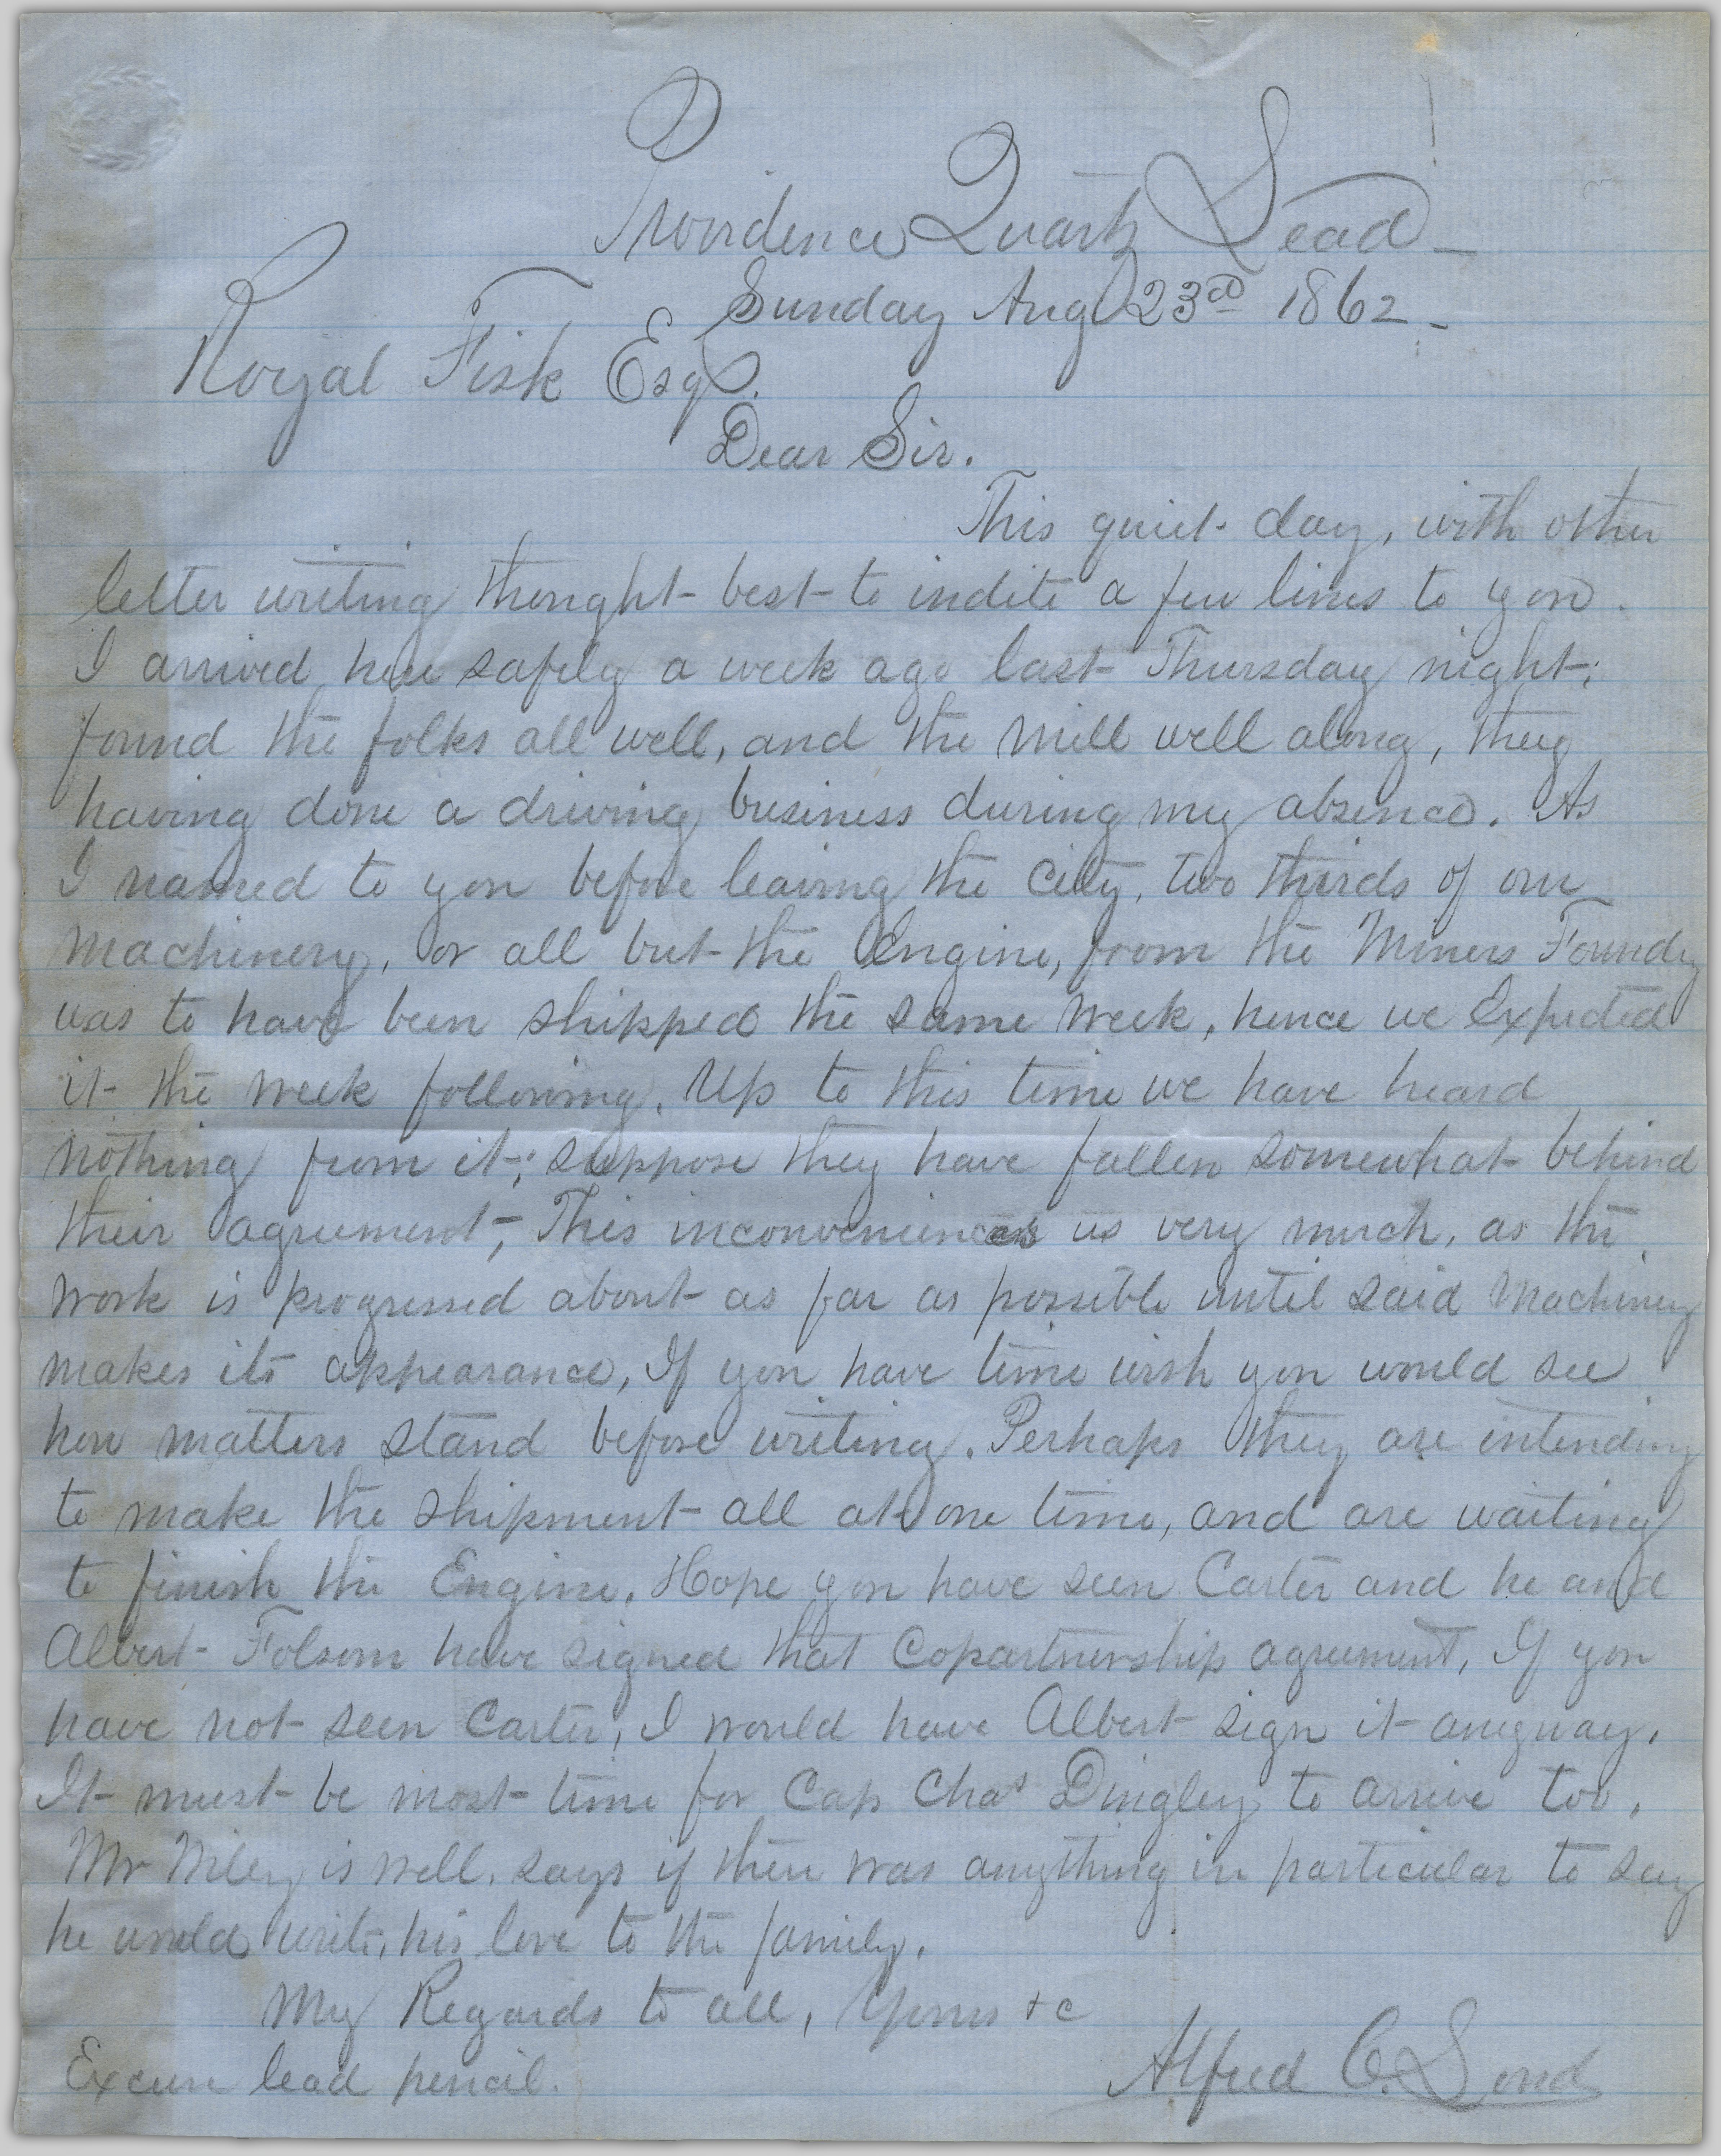 Providence Quartz Lead –
Sunday Aug 23rd 1862 –
Royal Fisk Esq.
Dear Sir.
This quiet day, with other
letter writing thought best to indite a few lines to you.
I arrived here safely a week ago last Thursday night;
found the folks all well, and the Mill well along, they
having done a driving business during my absence. As
I named to you before leaving the City, two thirds of our
Machinery, or all but the Engine, from the Miners Foundry
was to have been shipped the same week, hence we Expected
it the week following. Up to this time we have heard
nothing from it; suppose they have fallen somewhat behind
their agreement,– This inconveniences us very much, as the
work is progressed about as far as possible until said Machinery
makes its appearance, If you have time wish you would see
how matters stand before writing. Perhaps they are intending
to make the shipment all at one time, and are waiting
to finish the Engine, Hope you have seen Carter and he and
Albert Folsom have signed that Copartnership agreement, If you
have not seen Carter, I would have Albert sign it anyway.
It must be most time for Cap Chas Dingley to arrive too,
Mr Niley is well, says if there was anything in particular to say
he would write, his love to the family.
My Regards to all, Yours &c
Excuse lead pencil.
Alfred C.